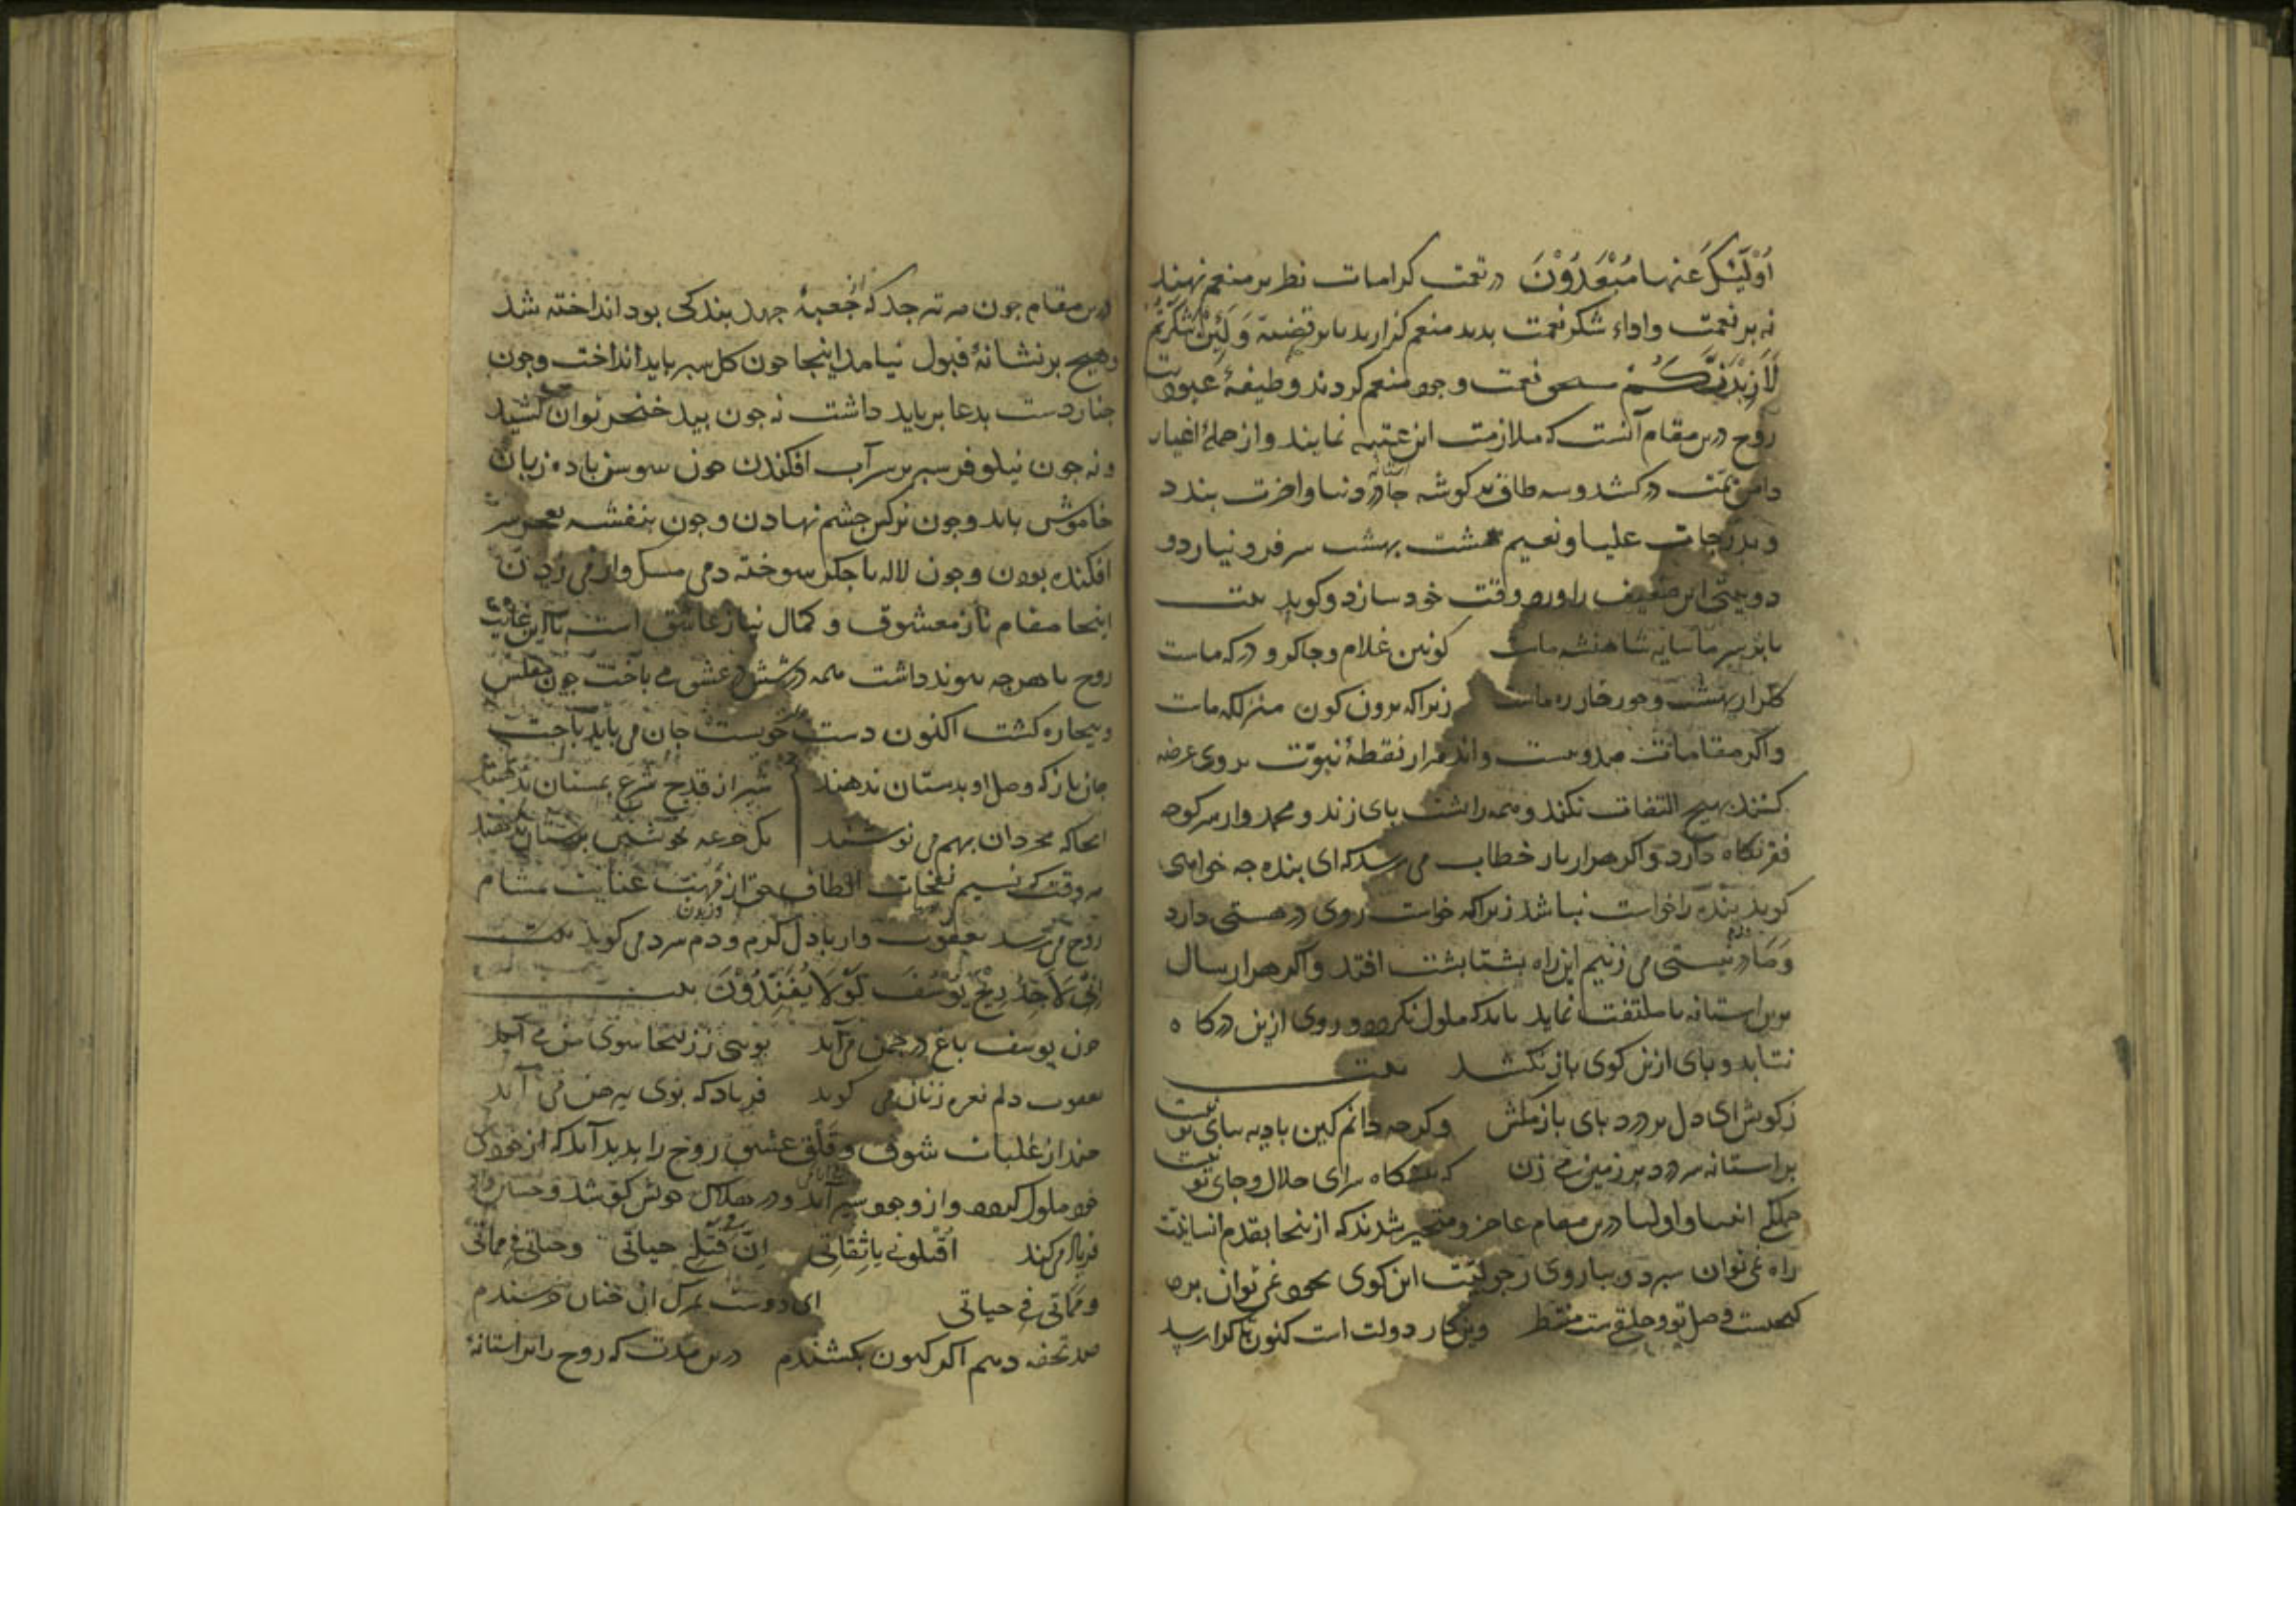 اُولَئِكَ عَنهَا مُبْعَدُوْنَ در نعمت کرامات نظر بر منعم نهند
نه بر نعمت واداء شکر نعمت بدید منعم کزارید تا بر قضیهٔ وَلَئِنْ شَکَرْتُمْ
لَاَزِیْدَنَّكُمْ نعمت وجود منعم کردند وظیفهٔ عبودیت
روح درین مقام آنست که ملازمت این عتبه نمایند و از جملهٔ اغیار
دامن همت در کشد و سه طاق بر کوشه جادر دنیا و اخرت بندد
و بدرجات علیا و نعیم هشت بهشت سر فرو نیارد و
دو بیتی این ضعیف را ورد وقت خود سازد و کوید بیت
تا بر سر ما سایه شاهنشه ماست کونین غلام و جاکر و درکه ماست
کلزار بهشت و حور خار ره ماست زیرا که برون کون منزلکه ماست
و اکر مقامات صد و بیست و اند هزار نقطهٔ نبوّت بر وی عرضه
کنند بهیچ التفات نکند و همه را بشت بای زند و محمد وار سر کوجه
فقر نکاه دارد و اکر هزار بار خطاب می رسد که ای بنده جه خواهی
کوید بنده را خواست نباشد زیرا که خواست روی در هستی دارد
و ما در نیستی می زنیم این راه بشتابشت افتد و اکر هزار سال
برین استانه نا ملتفت نماید باید که ملول نکردد و روی ازین درکاه
نتابد و بای ازین کوی باز نکشد بیت
زکوش ای دل بر درد بای باز مکش وکرجه دانم کین بادیه ببای تو نیست
بر استانه سر درد بر زمین می زن که بیشکاه سرای جلال و جای تو نیست
جملکی انبیا و اولیا درین مقام عاجز و متحیر شدند که ازینجا بقدم انسانیت
راه نمی توان سبرد و بباروی رجولیّت این کوی بخود نمی توان برد
کنجیست وصل تو و خلقیست منتظر وین کار دولت است کنون تا کرا رسد
درین مقام جون هر تیر جد که از جعبهٔ جهد بندکی بود انداخته شد
و هیچ بر نشانهٔ قبول نیامد اینجا جون کل سبر باید انداخت و جون
جنار دست بدعا بر باید داشت نه جون بید خنجر توان کشید
و نه جون نیلوفر سبر بر سر آب افکندن جون سوسن با ده زبان
خاموش باید و جون نرکس جشم نهادن و جون بنفشه بعجز سر
افکنده بودن و جون لاله با جکر سوخته دمی مشک وار می زدن
اینجا مقام ناز معشوق و کمال نیاز عاشق است تا این غایت
روح با هر جه بیوند داشت همه در شش در عشق می باخت جون مفلس
و بیجاره کشت اکنون دست خونست جان می باید باخت
جان باز که وصل او بدستان ندهند شیر از قدح شرع بمستان ندهند
انجا که مجردان بهم می نوشند یک جرعه بخویشتن برستان ندهند
هر وقت که نسیم نفخات الطاف حق از مهبّ عنایت بمشام
روح می رسد یعقوب وار با دل کرم و دم سرد می کوید
اِنِّی لَاَجِدُ رِیْحَ یُوْسُفَ لَوْلَا تُفَنِّدُوْنَ بیت
جون یوسف باغ در جمن می آید بویی ز زلیخا سوی من می آید
یعقوب دلم نعره زنان می کوید فریاد که بوی بیرهن می آید
جندان غلبات شوق و قلق عشق روح را بدید آید که از خودی
خود ملول کردد و از وجود سیر آید و در هلاک خویش کوشد و حسین وار
فریاد می کند اُقْتُلُونِی یَا ثِقَاتِی اِنَّ فِی قَتْلِی حَیَاتِی وحیاتی فی مماتی
ومماتی فی حیاتی ای دوست بمرک ان جنان خرسندم
صد تحفه دهم اکر کنون بکشندم درین مدت که روح را بر استانهٔ